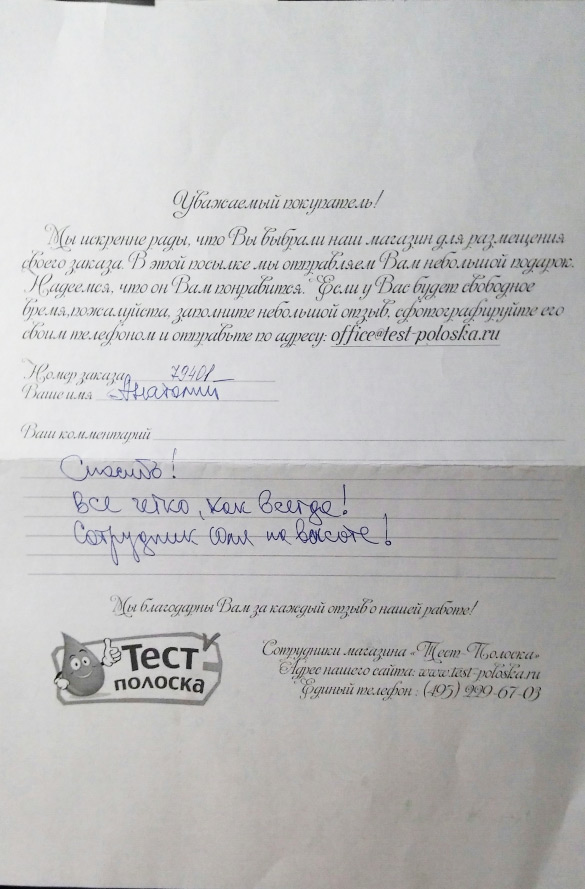 Уважаемый покупатель!
Мы искренне рады, что Вы выбрали наш магазин для размещения
своего заказа. В этой посылке мы отправляем Вам небольшой подарок.
Надеемся, что он Вам понравится. Если у Вас будет свободное
время,пожалуйста, заполните небольшой отзыв, сфотографируйте его
своим телефоном и отправьте по адресу: office@test-poloska.ru
Номер заказа 79401
Ваше имя Анатолий
Ваш комментарий
Спасибо!
Все четко, как всегда!
Сотрудник на высоте!
Мы благодарны Вам за каждый отзыв о нашей работе!
Тест
полоска
Сотрудники магазина «Тест-Полоска»
Адрес нашего сайта: www.test-poloska.ru
Единый телефон : (495) 229-67-03